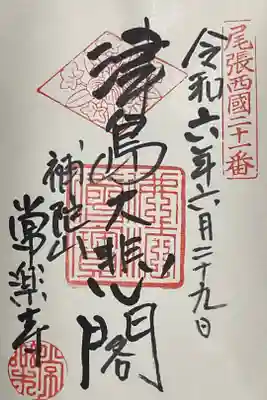 尾張西國二十一番
令和六年六月二十九日
津島大悲閣
補陀山
常楽寺